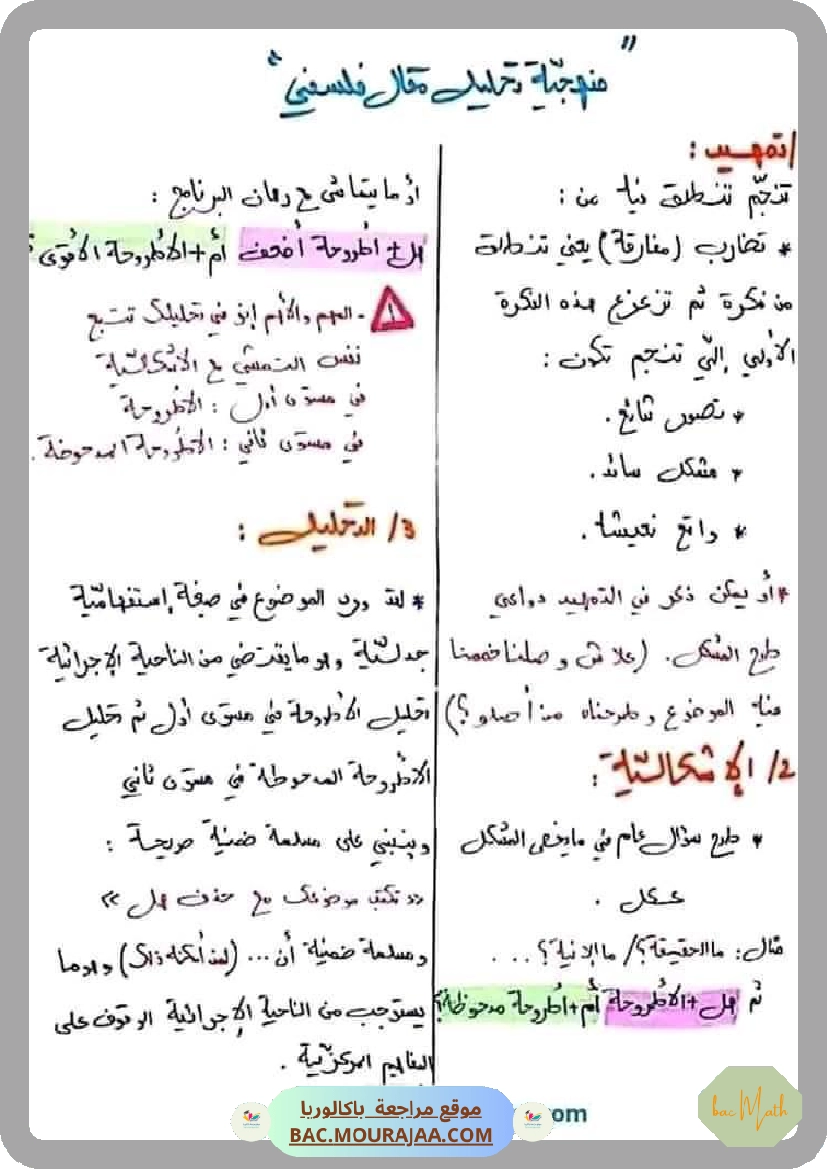 "منهجيّة تحليل مقال فلسفي"
1/ تمهيد :
تنجّم تنطلق فيه من :
* تضارب (مفارقة) يعني تنطلق
من فكرة ثم تزعزع هذه الفكرة
الأولى إلّي تنجم تكون :
* تصور شائع .
* مشكل سائد .
* واقع نعيشه .
* أو يمكن ذكر في التمهيد دواعي
طرح المشكل . (علاش وصلنا خممنا
في الموضوع وطرحناه من أصلو ؟)
2/ الإشكاليّة :
* طرح سؤال عام في ما يخص المشكل
ككل .
مثال : ما الحقيقة ؟ / ما الإنية ؟ . . .
ثم هل + الأطروحة أم + أطروحة مدحوظة ؟
أو ما يتماشى مع رهان البرنامج :
هل + أطروحة أضعف أم + الأطروحة الأقوى ؟
. المهم والأهم إنو في تحليلك تتبع
نفس التمشي مع الإشكاليّة
في مستوى أول : الأطروحة
في مستوى ثاني : الأطروحة المدحوضة .
3/ التحليل :
* لقد ورد الموضوع في صيغة إستفهاميّة
جدليّة وهو ما يقتضي من الناحية الإجرائية
تحليل الأطروحة في مستوى أول ثم تحليل
الأطروحة المدحوظة في مستوى ثاني
وينبني على مسلمة ضمنية صريحة :
« تكتب موضوعك مع حذف هل »
ومسلمة ضمنية أن ... ( ) وهو ما
يستوجب من الناحية الإجرائية الوقوف على
المفاهيم المركزيّة .
موقع مراجعة باكالوريا
BAC.MOURAJAA.COM
om
bac Math